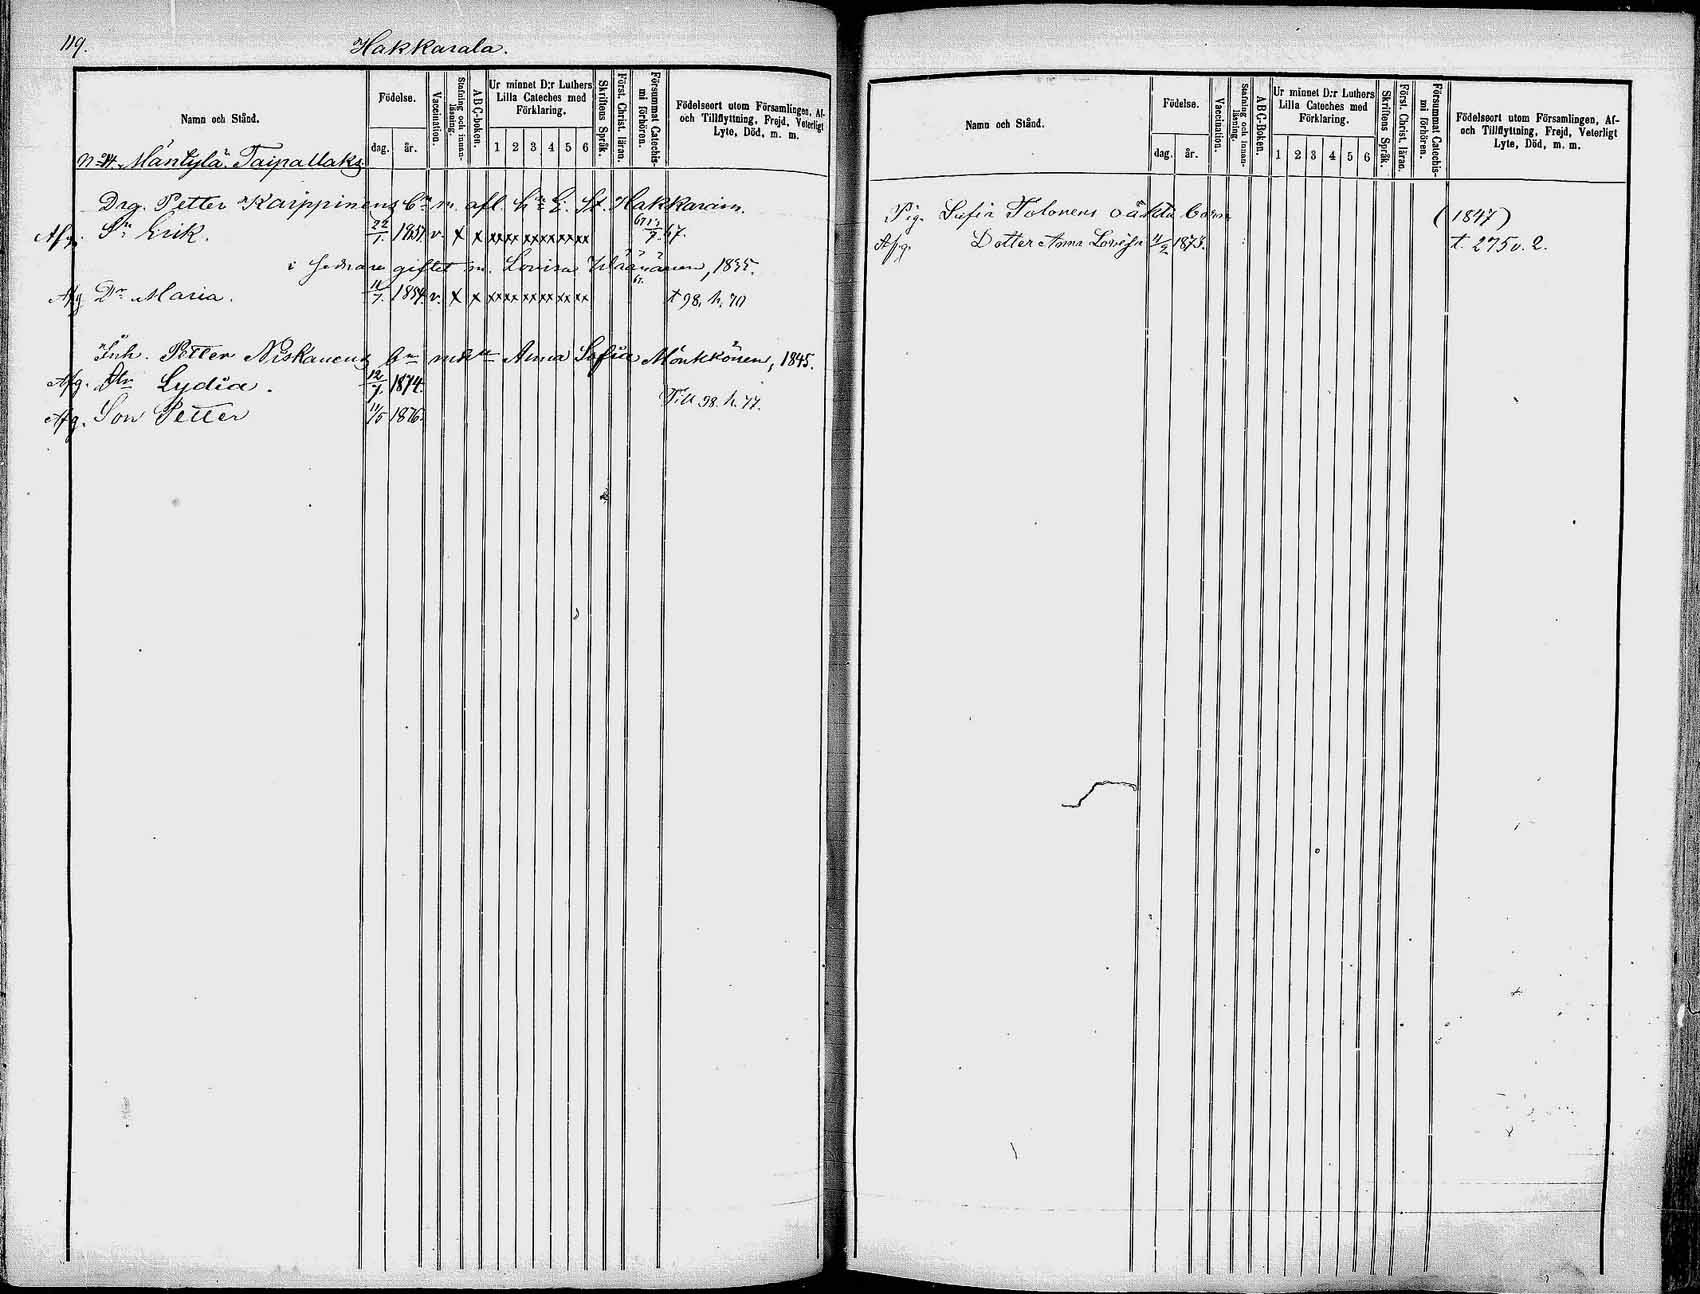 119.
Hakkarala.
Namn och Stånd.
Födelse.
dag.
år.
Vaccination.
Stafning och innanläsning.
ABC-boken.
Ur minnet D:r Luthers Lilla Cateches med Förklaring.
1 2 3 4 5 6
Skriftens Språk.
Först. Christ. läran.
Försummat Catechismi förhören.
Födelseort utom Församlingen, Af- och Tillflyttning, Frejd, Veterligt Lyte, Död, m. m.
N:o 24. Mäntylä. Taipallaks
Drg. Petter Karppinens bn m. afl. h. E. St. Hakkarain.
Afg. Sn Erik. 22/1. 1851. v. x x xx xx xx xx xx xx 67.
i sednare giftet m. Lovisa Väänänen, 1835.
Afg Dr Maria. 11/7. 1854. v. x x xx xx xx xx xx xx t 98. h. 70
Inh. Petter Niskanens bn med Anna Sofia Mönkkönen, 1845.
Afg. Dtr Lydia. 12/7. 1874.
Till 98. h. 77.
Afg. Son Petter 11/5 1876.
Namn och Stånd.
Födelse.
dag.
år.
Vaccination.
Stafning och innanläsning.
ABC-Boken.
Ur minnet D:r Luthers Lilla Cateches med Förklaring.
1 2 3 4 5 6
Skriftens Språk.
Först. Christ. läran.
Försummat Catechismi förhören.
Födelseort utom Församlingen, Af- och Tillflyttning, Frejd, Veterligt Lyte, Död, m. m.
Pig. Sofia Tolonens oäkta barn (1847)
Afg. Dotter Anna Lovisa 11/2 1873. t. 275 v. 2.